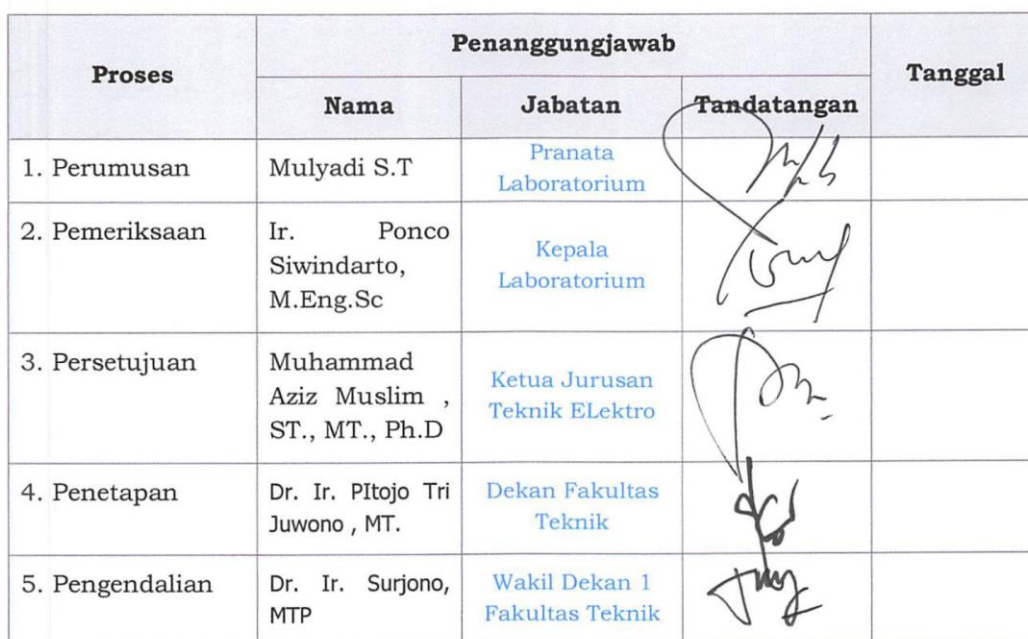 Penanggungjawab
Proses
Tanggal
Nama
Jabatan
Tandatangan
1. Perumusan
Mulyadi S.T
Pranata
Laboratorium
2. Pemeriksaan
Ir. Ponco
Siwindarto,
M.Eng.Sc
Kepala
Laboratorium
3. Persetujuan
Muhammad
Aziz Muslim ,
ST., MT., Ph.D
Ketua Jurusan
Teknik ELektro
4. Penetapan
Dr. Ir. PItojo Tri
Juwono , MT.
Dekan Fakultas
Teknik
5. Pengendalian
Dr. Ir. Surjono,
MTP
Wakil Dekan 1
Fakultas Teknik